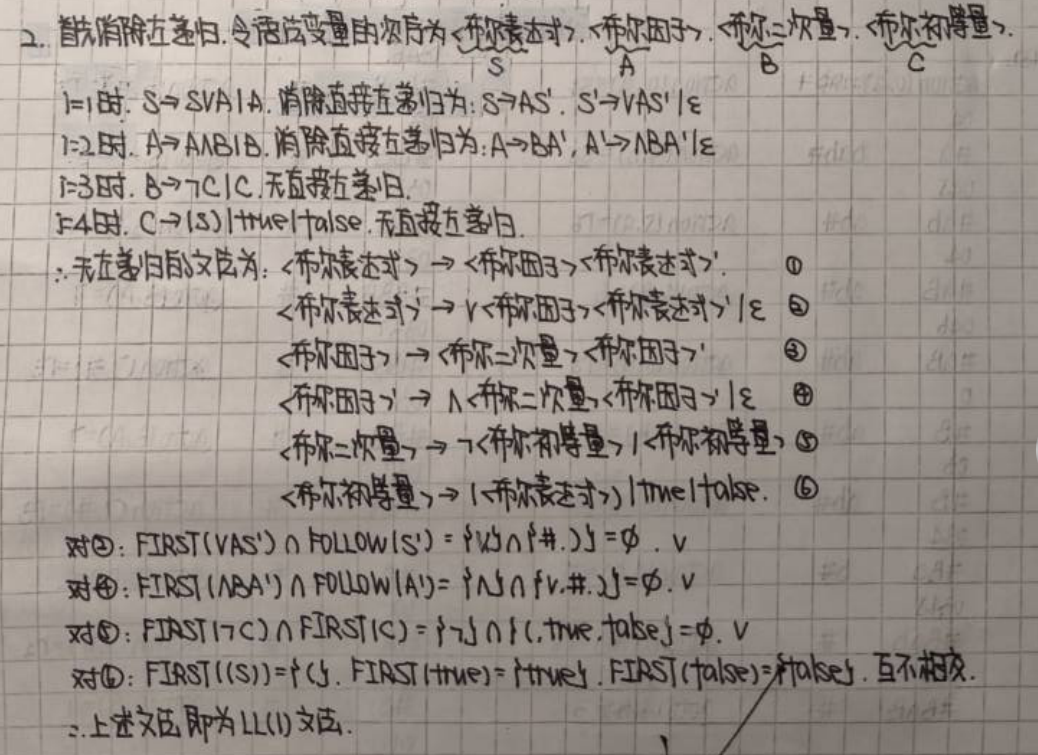 2. 首先消除左递归. 令语法变量的次序为<布尔表达式>. <布尔因子>. <布尔二次量>. <布尔初等量>.
S A B C
i=1时. S→S∨A|A. 消除直接左递归为: S→AS'. S'→∨AS'|ε
i=2时. A→A∧B|B. 消除直接左递归为: A→BA', A'→∧BA'|ε
i=3时. B→¬C|C. 无直接左递归.
i=4时. C→(S)|true|false. 无直接左递归.
∴无左递归的文法为: <布尔表达式> → <布尔因子><布尔表达式>'. ①
<布尔表达式>' → ∨<布尔因子><布尔表达式>'|ε ②
<布尔因子> → <布尔二次量><布尔因子>' ③
<布尔因子>' → ∧<布尔二次量><布尔因子>'|ε ④
<布尔二次量> → ¬<布尔初等量>|<布尔初等量> ⑤
<布尔初等量> → (<布尔表达式>)|true|false. ⑥
对②: FIRST(∨AS')∩FOLLOW(S') = {∨}∩{#.)}=∅. √
对④: FIRST(∧BA')∩FOLLOW(A')= {∧}∩{∨.#.)}=∅. √
对⑤: FIRST(¬C)∩FIRST(C)={¬}∩{(.true.false}=∅. √
对⑥: FIRST((S))={(}. FIRST(true)={true}. FIRST(false)={false}. 互不相交.
∴上述文法即为LL(1)文法.